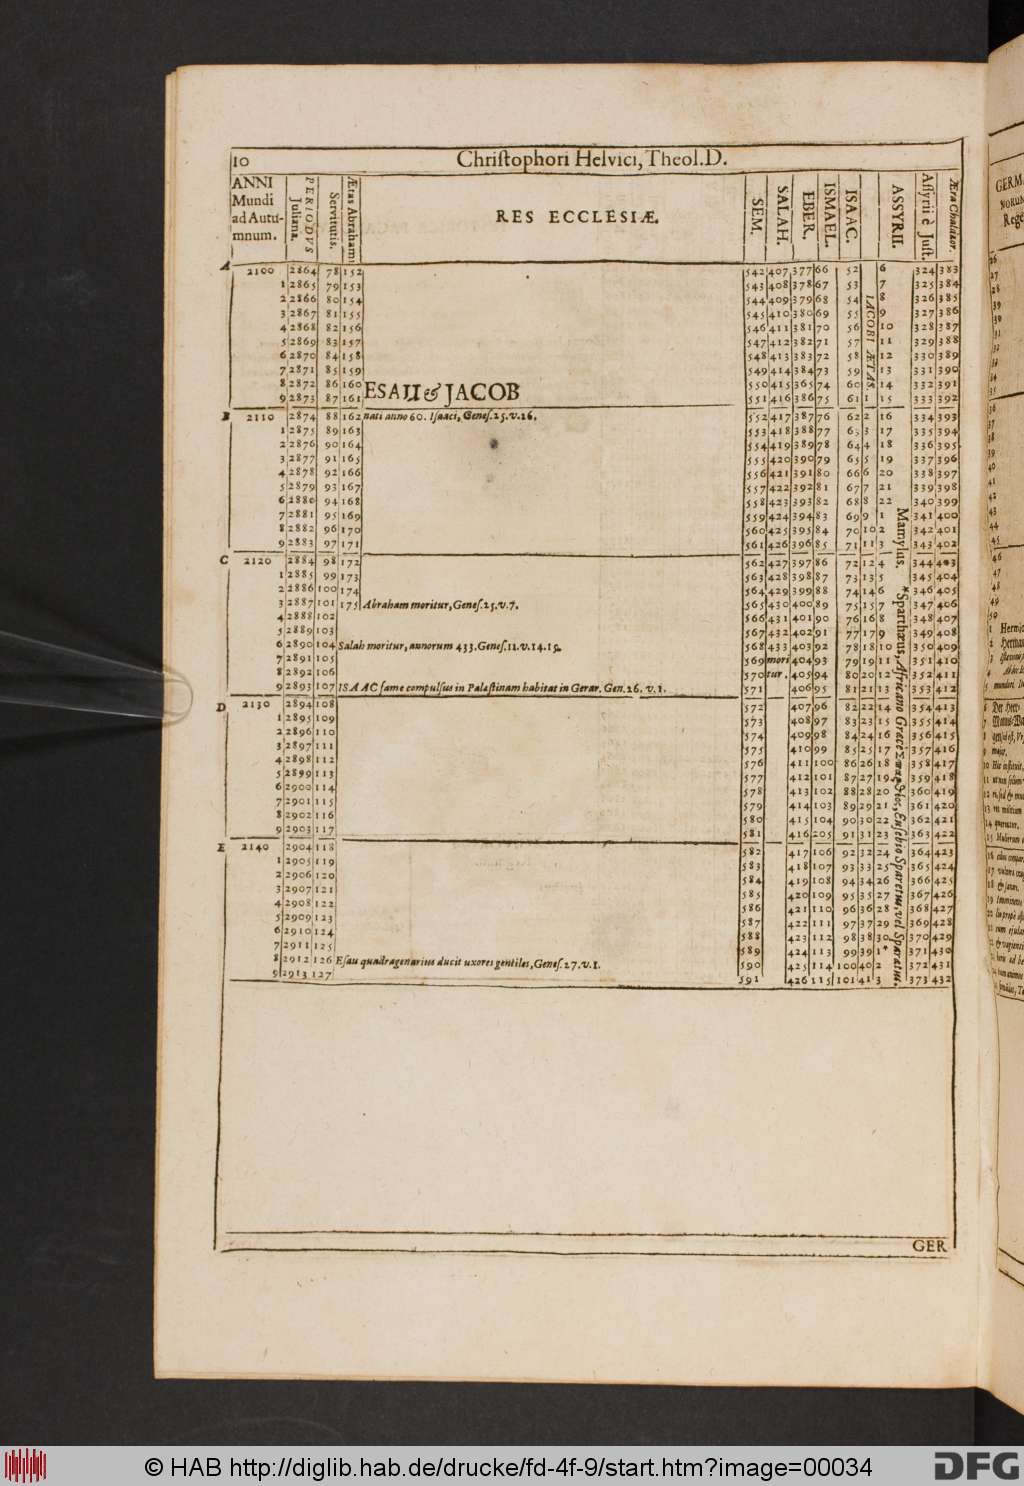 10 Christophori Helvici, Theol. D.
ANNI Mundi ad Autumnum. PERIODVS Juliana. Servitutis. Ætas Abrahami RES ECCLESIÆ. SEM. SALAH. EBER. ISMAEL. ISAAC. ASSYRII. Assyrii è Just. Æra Chaldæor.
A 2100 2864 78 152 542 407 377 66 52 6 324 383
1 2865 79 153 543 408 378 67 53 7 325 384
2 2866 80 154 544 409 379 68 54 8 326 385
3 2867 81 155 545 410 380 69 55 9 327 386
4 2868 82 156 546 411 381 70 56 10 328 387
5 2869 83 157 547 412 382 71 57 11 329 388
6 2870 84 158 548 413 383 72 58 12 330 389
7 2871 85 159 549 414 384 73 59 13 331 390
8 2872 86 160 ESAU & JACOB 550 415 365 74 60 14 332 391
9 2873 87 161 551 416 386 75 61 1 15 333 392
IACOBI ÆTAS.
B 2110 2874 88 162 nati anno 60. Isaaci, Genes. 25. v. 26. 552 417 387 76 62 2 16 334 393
1 2875 89 163 553 418 388 77 63 3 17 335 394
2 2876 90 164 554 419 389 78 64 4 18 336 395
3 2877 91 165 555 420 390 79 65 5 19 337 396
4 2878 92 166 556 421 391 80 66 6 20 338 397
5 2879 93 167 557 422 392 81 67 7 21 339 398
6 2880 94 168 558 423 393 82 68 8 22 340 399
7 2881 95 169 559 424 394 83 69 9 1 341 400
8 2882 96 170 560 425 395 84 70 10 2 342 401
9 2883 97 171 561 426 396 85 71 11 3 343 402
Mamylus.
C 2120 2884 98 172 562 427 397 86 72 12 4 344 403
1 2885 99 173 563 428 398 87 73 13 5 345 404
2 2886 100 174 564 429 399 88 74 14 6 346 405
3 2887 101 175 Abraham moritur, Genes. 25. v. 7. 565 430 400 89 75 15 7 347 406
4 2888 102 566 431 401 90 76 16 8 348 407
5 2889 103 567 432 402 91 77 17 9 349 408
6 2890 104 Salah moritur, annorum 433. Genes. 11. v. 14. 15. 568 433 403 92 78 18 10 350 409
7 2891 105 569 mori 404 93 79 19 11 351 410
8 2892 106 570 tur. 405 94 80 20 12 352 411
9 2893 107 ISAAC fame compulsus in Palæstinam habitat in Gerar. Gen. 26. v. 1. 571 406 95 81 21 13 353 412
D 2130 2894 108 572 407 96 82 22 14 354 413
1 2895 109 573 408 97 83 23 15 355 414
2 2896 110 574 409 98 84 24 16 356 415
3 2897 111 575 410 99 85 25 17 357 416
4 2898 112 576 411 100 86 26 18 358 417
5 2899 113 577 412 101 87 27 19 359 418
6 2900 114 578 413 102 88 28 20 360 419
7 2901 115 579 414 103 89 29 21 361 420
8 2902 116 580 415 104 90 30 22 362 421
9 2903 117 581 416 205 91 31 23 363 422
*Sparthæus, Africano Græcè hoc, Eusebio Sparetus, vel Sparatus.
E 2140 2904 118 582 417 106 92 32 24 364 423
1 2905 119 583 418 107 93 33 25 365 424
2 2906 120 584 419 108 94 34 26 366 425
3 2907 121 585 420 109 95 35 27 367 426
4 2908 122 586 421 110 96 36 28 368 427
5 2909 123 587 422 111 97 37 29 369 428
6 2910 124 588 423 112 98 38 30 370 429
7 2911 125 589 424 113 99 39 1* 371 430
8 2912 126 Esau quadragenarius ducit uxores gentiles, Genes. 27. v. 1. 590 425 114 100 40 2 372 431
9 2913 127 591 426 115 101 41 3 373 432
GER
© HAB http://diglib.hab.de/drucke/fd-4f-9/start.htm?image=00034
DFG